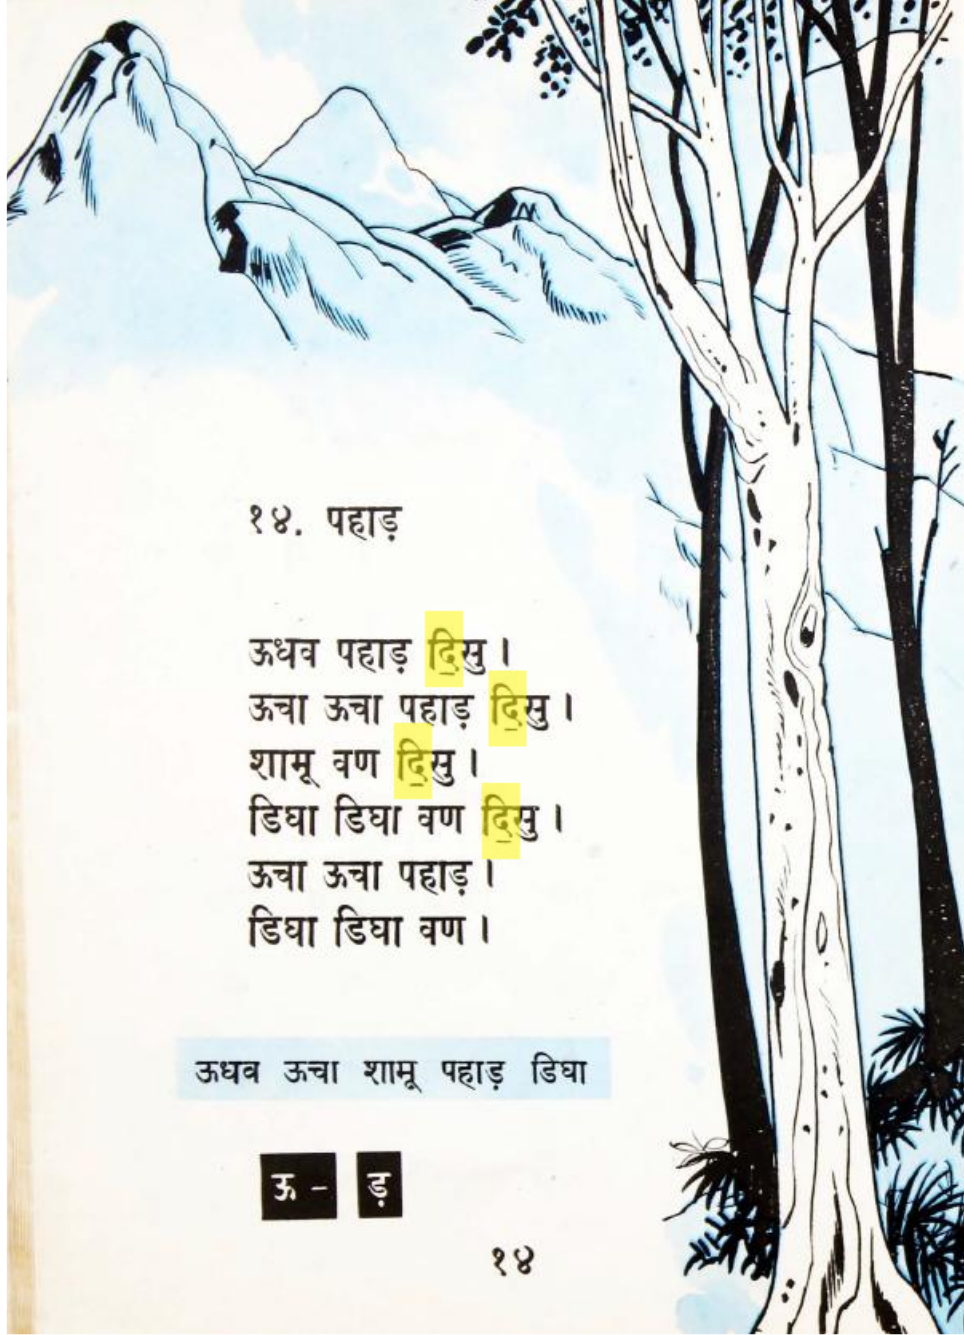 १४. पहाड़
ऊधव पहाड़ द॒िसु ।
ऊचा ऊचा पहाड़ द॒िसु ।
शामू वण द॒िसु ।
डिघा डिघा वण द॒िसु ।
ऊचा ऊचा पहाड़ ।
डिघा डिघा वण ।
ऊधव ऊचा शामू पहाड़ डिघा
ऊ - ड़
१४